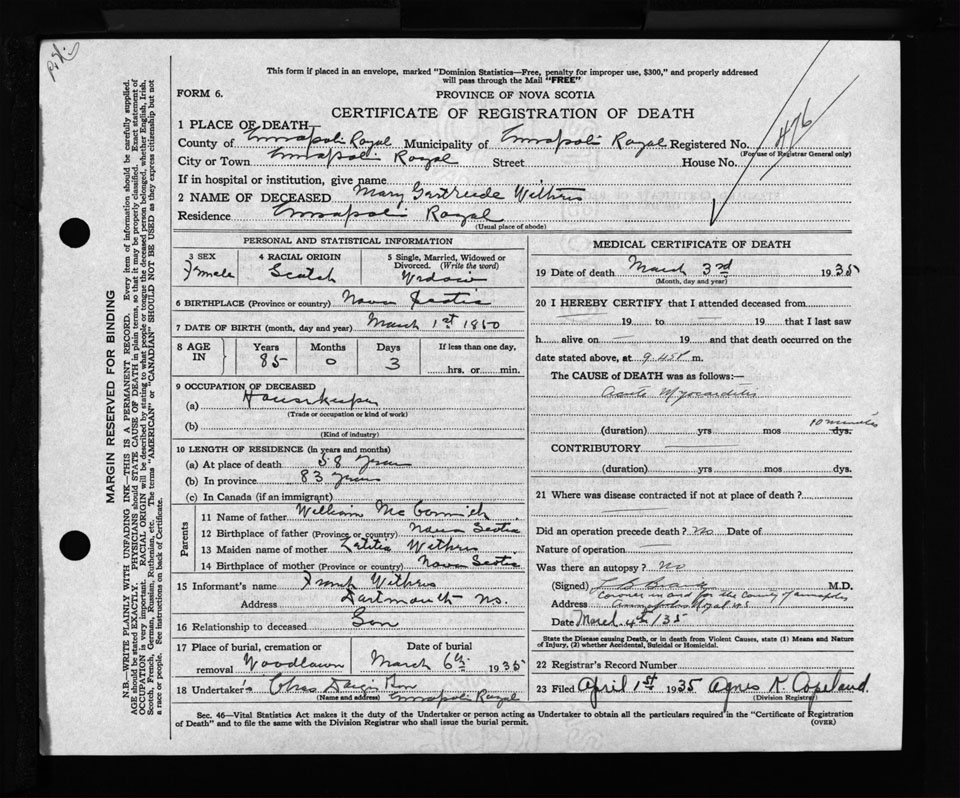 This form if placed in an envelope, marked "Dominion Statistics—Free, penalty for improper use, $300," and properly addressed
will pass through the Mail "FREE"
FORM 6.
PROVINCE OF NOVA SCOTIA
CERTIFICATE OF REGISTRATION OF DEATH
476
1 PLACE OF DEATH—
County of Annapolis Royal Municipality of Annapolis Royal Registered No.
(For use of Registrar General only)
City or Town Annapolis Royal Street House No.
If in hospital or institution, give name
2 NAME OF DECEASED Mary Gertrude Withers
Residence Annapolis Royal
(Usual place of abode)
MARGIN RESERVED FOR BINDING
N.B.—WRITE PLAINLY WITH UNFADING INK—THIS IS A PERMANENT RECORD. Every item of information should be carefully supplied.
AGE should be stated EXACTLY. PHYSICIANS should STATE CAUSE OF DEATH in plain terms, so that it may be properly classified. Exact statement of
OCCUPATION is very important. RACIAL ORIGIN will be described by stating to what people or tongue the deceased person belonged, whether English, Irish,
Scotch, French, German, Russian, Ruthenian, etc. The terms "AMERICAN" or "CANADIAN" SHOULD NOT BE USED as they express citizenship but not
a race or people. See instructions on back of Certificate.
PERSONAL AND STATISTICAL INFORMATION
3 SEX
Female
4 RACIAL ORIGIN
Scotch
5 Single, Married, Widowed or
Divorced. (Write the word)
Widow
6 BIRTHPLACE (Province or country) Nova Scotia
7 DATE OF BIRTH (month, day and year) March 1st 1850
8 AGE
IN
Years
85
Months
0
Days
3
If less than one day,
hrs. or min.
9 OCCUPATION OF DECEASED
(a) Housekeeper
(Trade or occupation or kind of work)
(b)
(Kind of industry)
10 LENGTH OF RESIDENCE (in years and months)
(a) At place of death 58 years
(b) In province 83 years
(c) In Canada (if an immigrant)
Parents
11 Name of father William McCormick
12 Birthplace of father (Province or country) Nova Scotia
13 Maiden name of mother Letitia Withers
14 Birthplace of mother (Province or country) Nova Scotia
15 Informant's name Frank Withers
Address Dartmouth NS.
16 Relationship to deceased Son
17 Place of burial, cremation or
removal Woodlawn
Date of burial
March 6th 1935
18 Undertaker's Chas
(Name and address) Annapolis Royal
MEDICAL CERTIFICATE OF DEATH
19 Date of death March 3rd 1935
(Month, day and year)
20 I HEREBY CERTIFY that I attended deceased from
19 to 19 that I last saw
h alive on 19 and that death occurred on the
date stated above, at 9.45P m.
The CAUSE of DEATH was as follows:—
Acute Myocarditis
10 minutes
(duration) yrs mos dys.
CONTRIBUTORY
(duration) yrs mos dys.
21 Where was disease contracted if not at place of death?
Did an operation precede death? No Date of
Nature of operation
Was there an autopsy? No
(Signed) M.D.
Coroner in and for the County of Annapolis
Address Annapolis Royal NS
Date March 4th/35
State the Disease causing Death, or in death from Violent Causes, state (1) Means and Nature
of Injury, (2) whether Accidental, Suicidal or Homicidal.
22 Registrar's Record Number
23 Filed April 1st 1935 Agnes K. Copeland.
(Division Registrar)
Sec. 46—Vital Statistics Act makes it the duty of the Undertaker or person acting as Undertaker to obtain all the particulars required in the "Certificate of Registration
of Death" and to file the same with the Division Registrar who shall issue the burial permit.
(OVER)